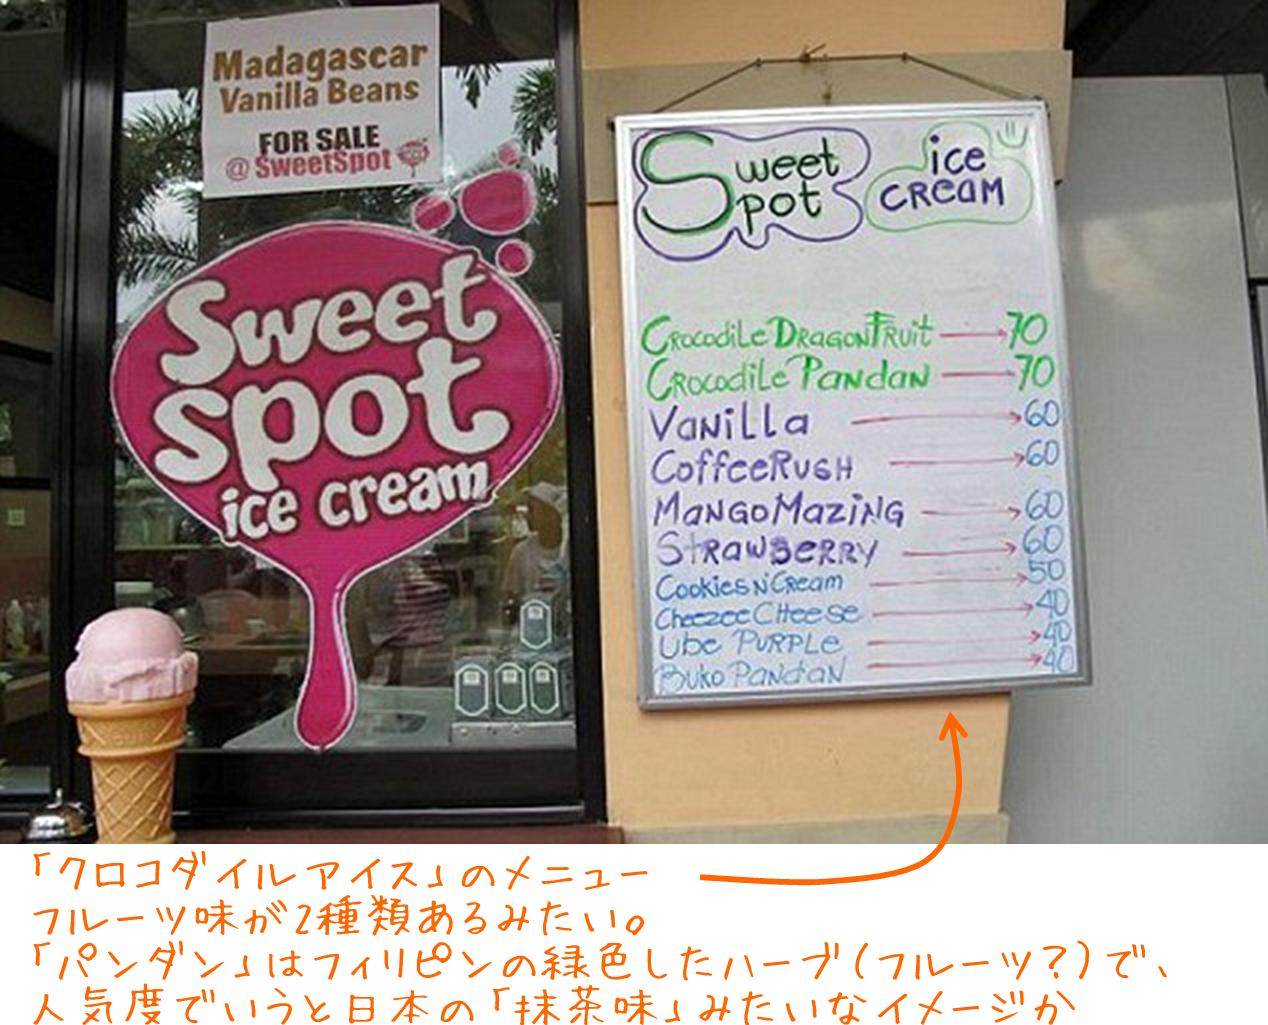 Madagascar
Vanilla Beans
FOR SALE
@ SweetSpot
Sweet
spot
ice cream
Sweet
Spot
ice
CREAM
CROCODILE DRAGONFRUIT 70
CROCODILE PANDAN 70
VANILLA 60
COFFEERUSH 60
MANGOMAZING 60
STRAWBERRY 60
COOKIES N CREAM 50
CHEEZEE CHEESE 40
UBE PURPLE 40
BUKO PANDAN 40
「クロコダイルアイス」のメニュー
フルーツ味が2種類あるみたい。
「パンダン」はフィリピンの緑色したハーブ(フルーツ?)で、
人気度でいうと日本の「抹茶味」みたいなイメージか